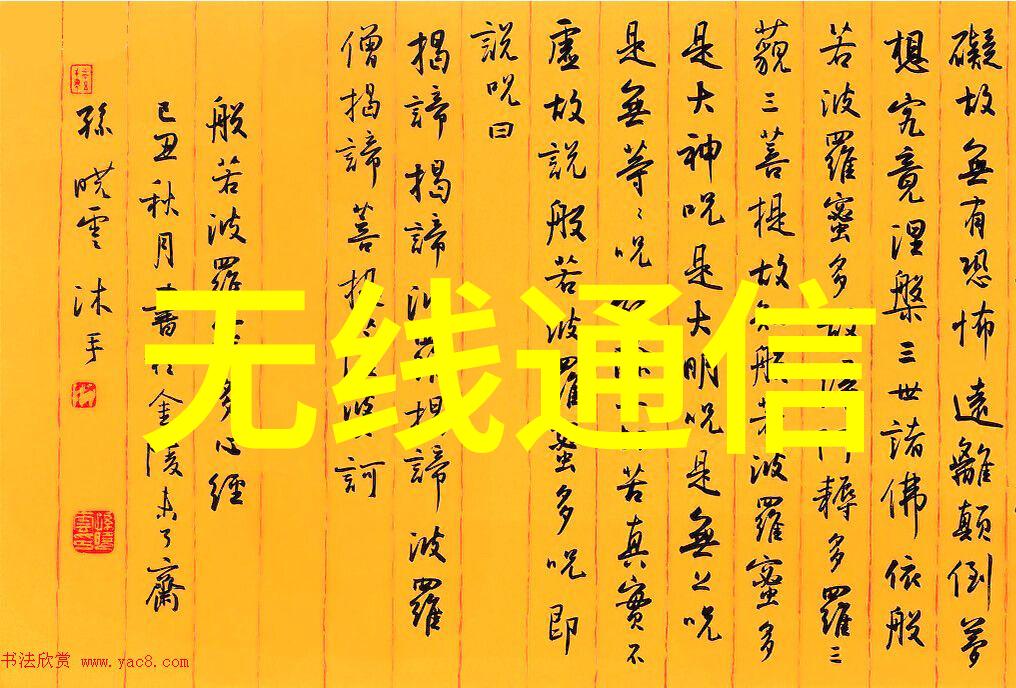 礙故無有恐怖遠離顛倒夢
想究竟涅槃三世諸佛依般
若波羅蜜多故得阿耨多羅三
藐三菩提故知般若波羅蜜多
是大神呪是大明呪是無上呪
是無等〻呪能除苦真實不
虛故説般若波羅蜜多呪即
説呪曰
揭諦揭諦波羅揭諦波羅
僧揭諦菩提婆訶
般若波羅蜜多心經
己丑秋月書於金陵未了齋
孫曉雲沐手
无线通信
书法欣赏 www.yac8.com